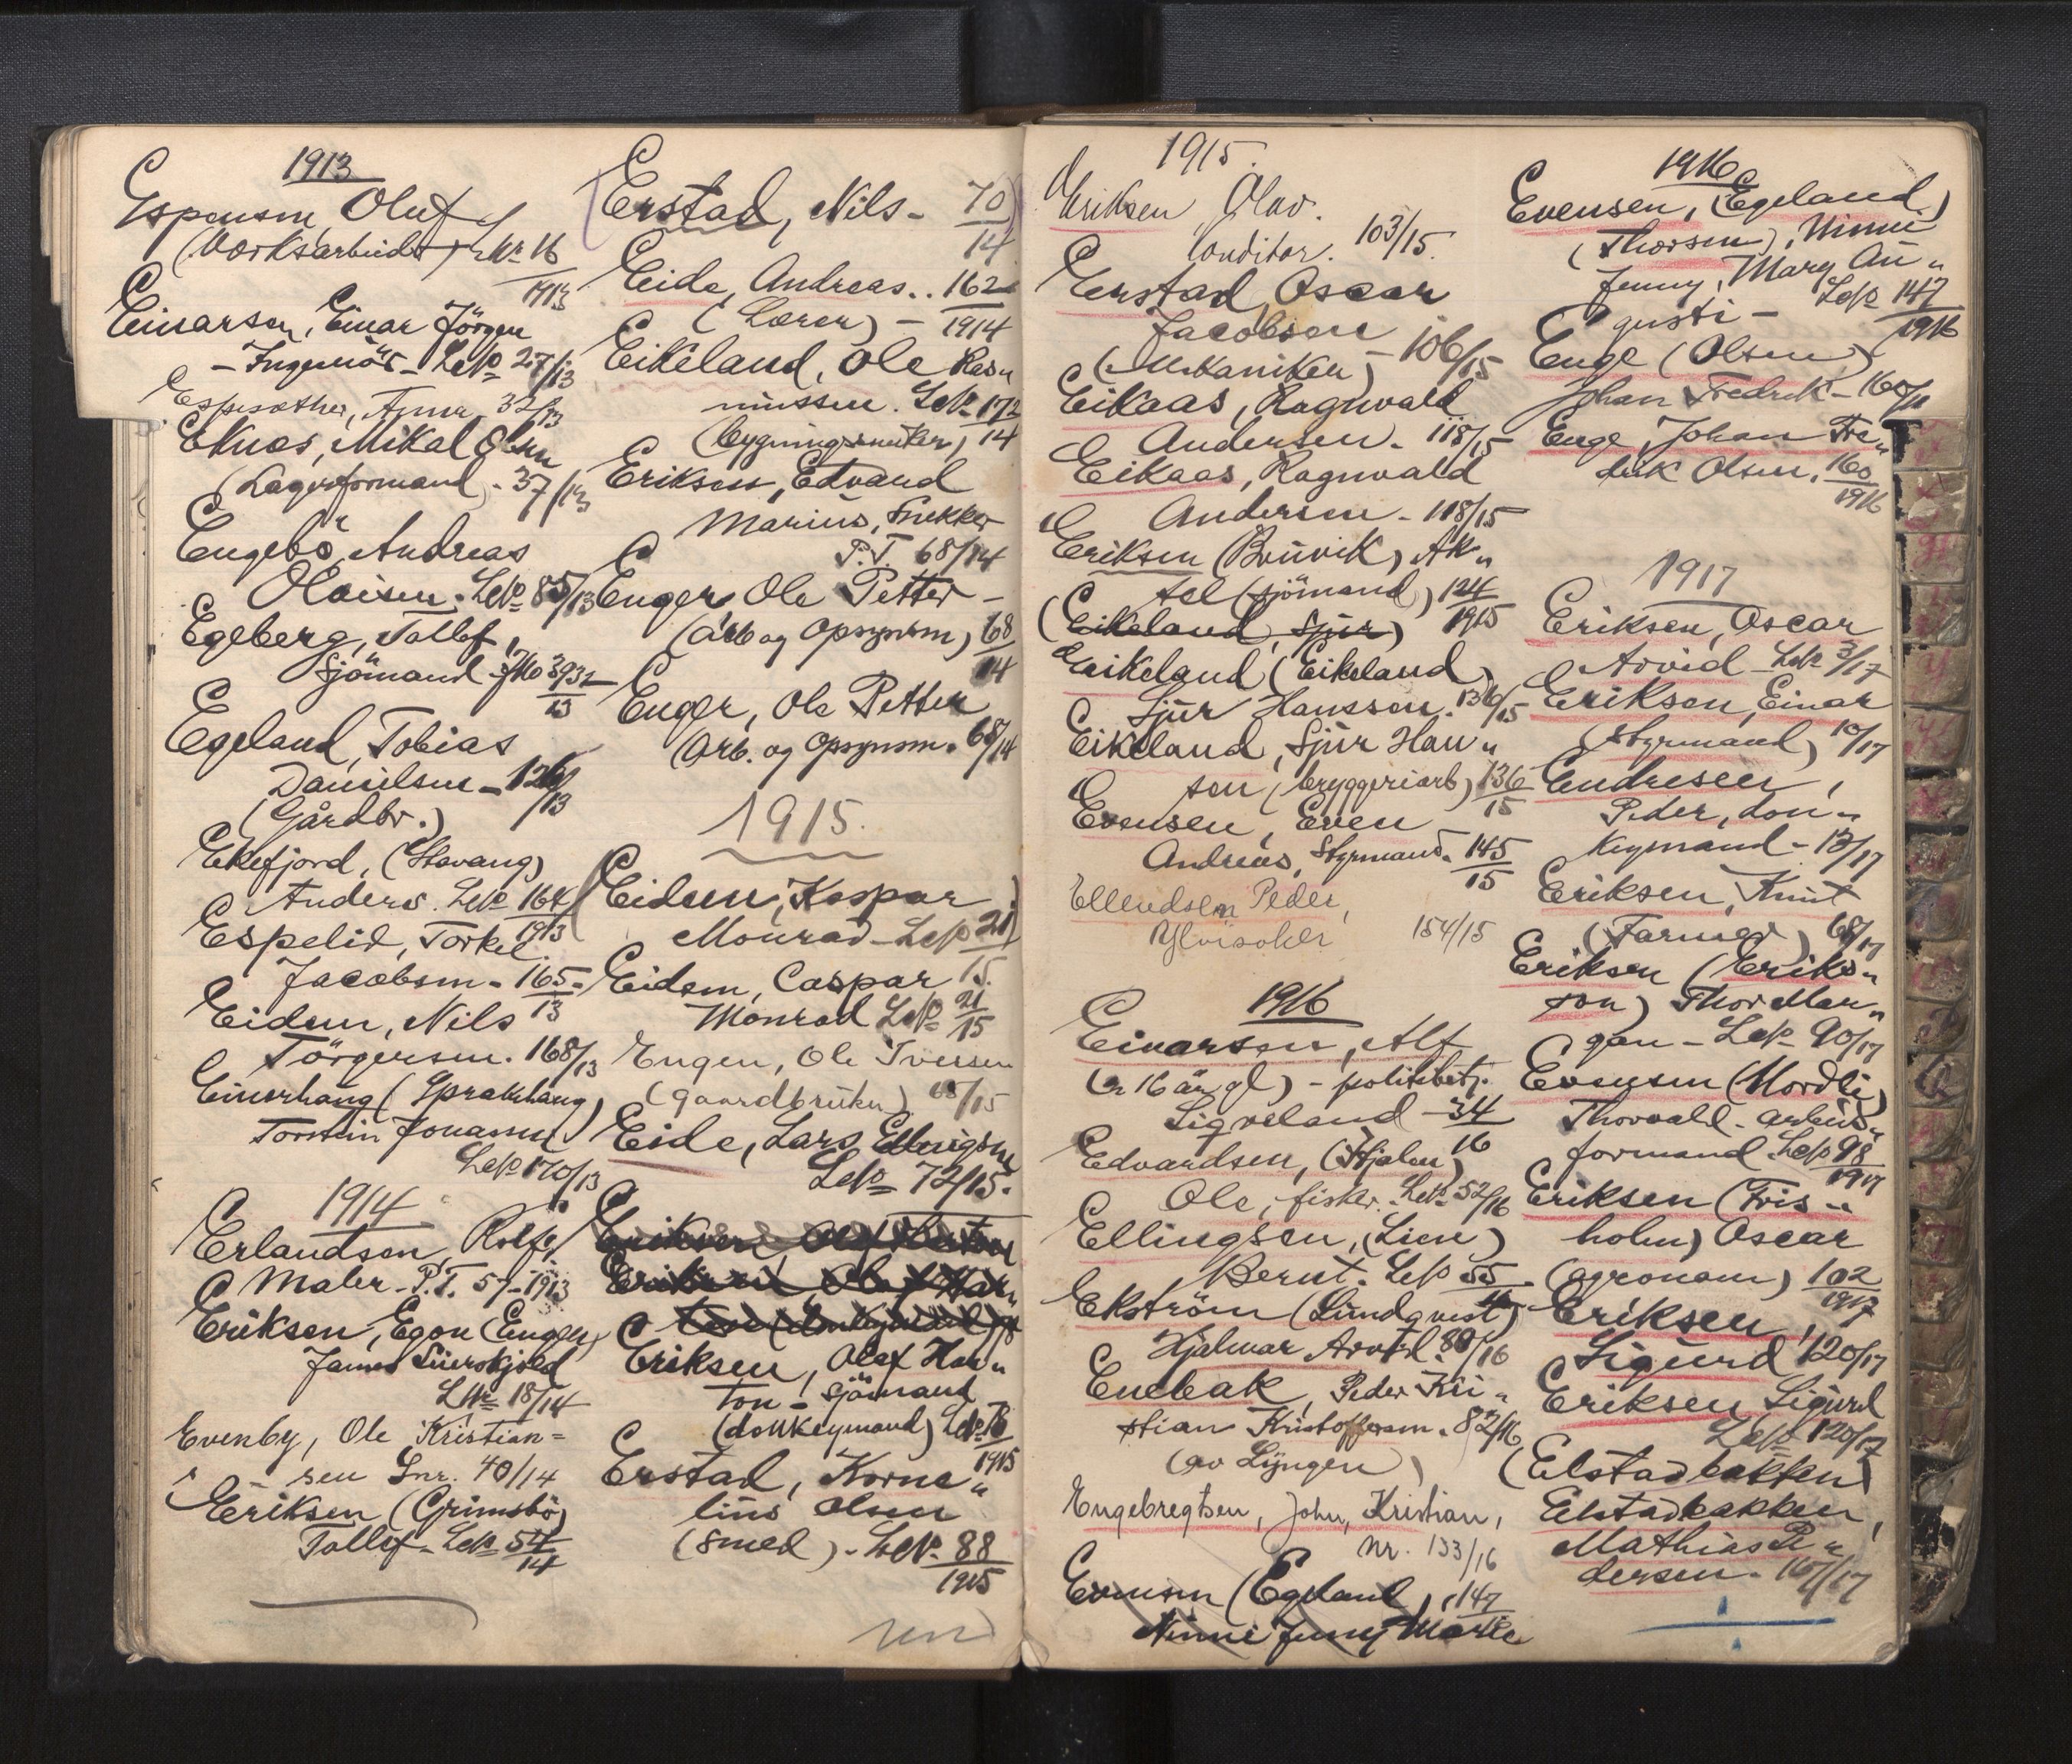 1913
Espensen, Oluf
(Værksarbeider) Nr 16
1913
Einarsen, Einar Jörgen
- Ingeniör - Løp 27/13
Espesæther, 32/13
Eknes, Mikal Olsen
(Lagerformand) - 37/13
Engebö, Andreas
Oloisen. Løp 85/13
Egeberg, Tollef,
Sjömand - 3932
13
Egeland, Tobias
Danielsen - 126/13
(Gårdbr.)
Ekefjord, (Stavang)
Anders. Løp 164
1913
Espelid, Torkel
Jacobsen - 165
13
Eidem, Nils
Törgersen. 168/13
Einerhaug (Sprakehaug)
Torstein Jonassen
Løp 170/13
1914
Erlandsen, Rolf,
Maler - P.T. 57 - 1913
Eriksen, Egon (Engen)
James
LNr 18/14
Evenby, Ole Kristian=
sen Lnr. 40/14
Eriksen (Grimsbö)
Tollef - Løp 54
14
Erstad, Nils - 70
14
Eide, Andreas.. 162
(Lærer) - 1914
Eikeland, Ole Ras„
mussen. Løp 172
(bygningssnekker) 14
Eriksen, Edvard
Marius, Snekker
P.T. 68/14
Enger, Ole Petter -
(Arb og Opsynsm) 68
14
Enger, Ole Petter
(Arb. og Opsynsm. 68/14
1915.
Eidem, Kaspar
Monrad - Løp 21
15.
Eidem, Caspar
Monrad LNr 21
15
Engen, Ole Iversen
(gaardbruker) 68/15
Eide, Lars Ellingsen
Løp 72/15.
Eriksen, Olaf
Eriksen, Olaf Har„
Eriksen, Olaf Har„
ton - sjömand
(donkeymand) Løp
1915
Erstad, Korne„
lius Olsen
(smed) - Løp. 88
1915
1915.
Eriksen Olav.
Conditor. 103/15.
Erstad, Oscar
Jacobsen
(Mekaniker) - 106/15
Eikaas, Ragnvald
Andersen - 118/15
Eikaas, Ragnvald
Andersen - 118/15
Eriksen (Bruvik), Ak„
sel (sjömand) 124
1915
(Eikeland, Sjur)
Eikeland (Eikeland)
Sjur Hanssen. 136/15
Eikeland, Sjur Han„
sen (bryggeriarb) 136
15
Evensen, Even
Andreas, Styrmand. 145
15
Ellendsen Peder,
Ylvisoker 154/15
1916
Einarsen, Alf
(er 16 år gl) - politibetj.
Sigveland - 34
16
Edvardsen, (Hjalen)
Ole, fisker. Løp. 52/16
Ellingsen, (Lien)
Bernt. Løp 55
Ekström (Lundqvist)
Hjalmar Arvid. 80/16
Enebak, Peder Kri„
stian Kristoffersen. 82/16
(av Lyngen)
Engebregtsen, John, Kristian,
nr. 133/16
Evensen (Egeland, 147
Ninni Jenny Marie
1916
Evensen, (Egeland)
(Thorsen), Ninni
Jenny, Mary Au„
gusti - Løp 147
1916
Enge (Olsen)
Johan Fredrik - 160/
Enge, Johan Fre„
drik Olsen, 160
1916
1917
Eriksen, Oscar
Arvid - Løp 3/17
Eriksen, Einar
(styrmand) 10/17
Endresen,
Peder, don„
keymand - 13/17
Eriksen, Knut
(Farmer) 68/17
Eriksen (Eriks„
son) Thor Mar„
gan - Løp 90/17
Evensen (Nordli)
Thorvald - arbeids„
formand Løp 98
1917
Eriksen (Fris„
holm) Oscar
(agronom) 102
1917
Eriksen,
Sigurd 120/17
Eriksen Sigurd
Løp 120/17
(Elstadbakken)
Elstadbakken,
Mathias Pe„
dersen - 167/17